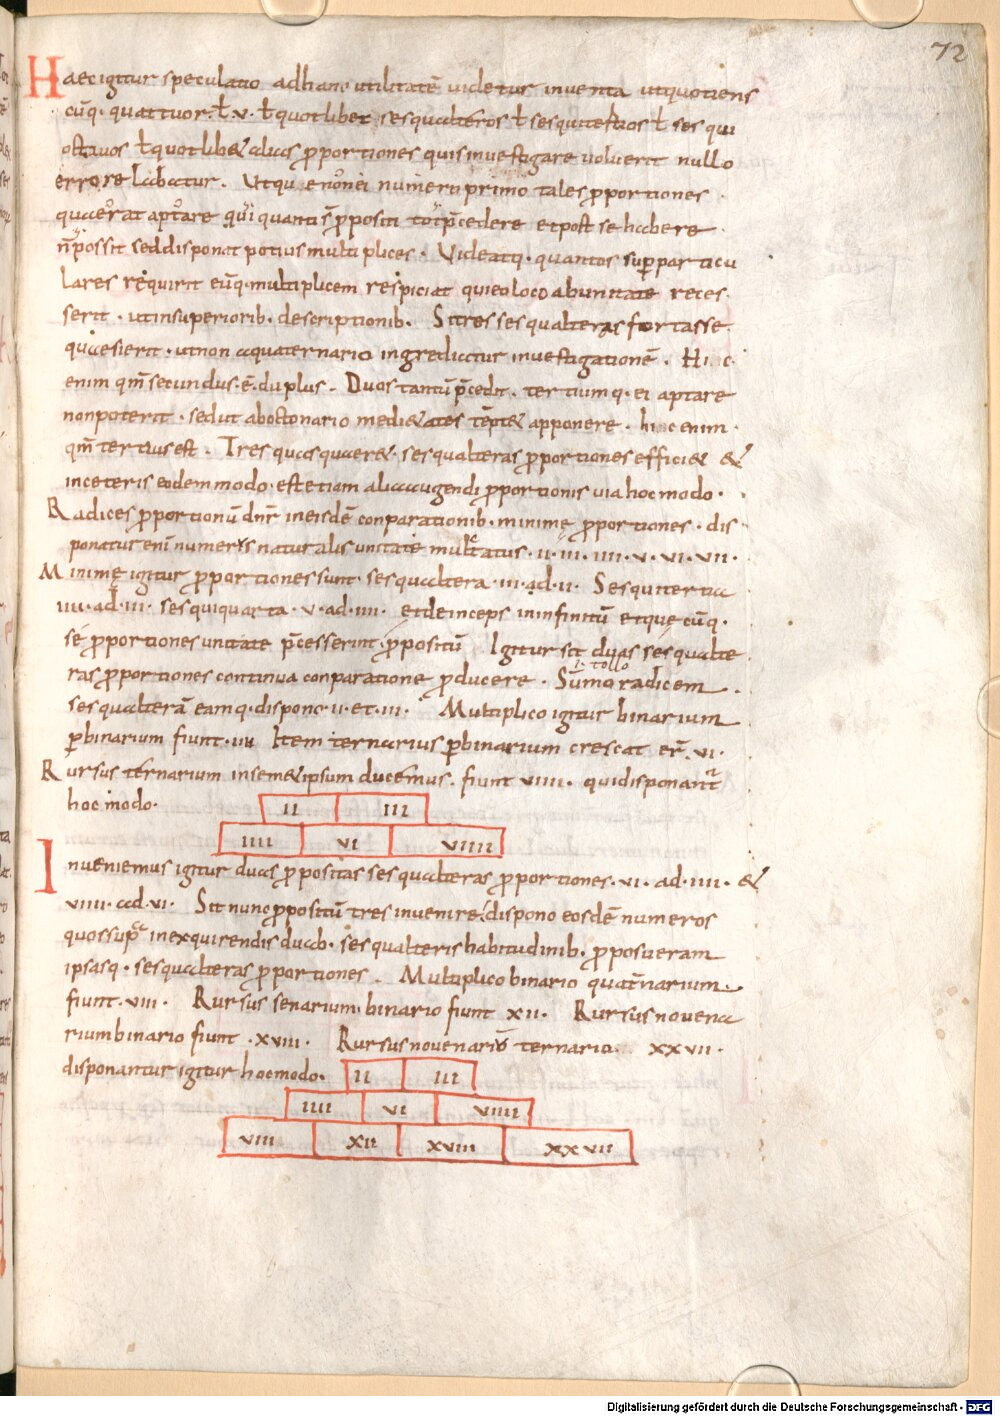 72
Haec igitur speculatio adhanc utilitatē uidetur inuenta utquotiens
cūq· quattuor· ł· v· ł quotlibet sesqualteros ł sesquitertios ł sesqui
octauos ł quotlib& alias ꝓportiones quis inuestigare uoluerit nullo
errore labatur. Utq; e nōnei numero primo tales ꝓportiones
quaerat aptare qui quanti s̄ ꝓpositi tot p̄cedere et post se habere
n̄ possit sed disponat potius multiplices. Videatq· quantos suꝑparticu
lares requirit eūq· multiplicem respiciat qui eo loco ab unitate reces
serit· ut in superiorib· descriptionib. Si tres sesqualteras fortasse
quaesierit· ut non a quaternario ingrediatur inuestigationē. Hic
enim qm̄ secundus· ē· duplus. Duos tantū p̄cedit. tertiumq· ei aptare
non poterit· sed ut ab octonario medi&ates tēpt& apponere· hic enim
qm̄ tertius est. Tres quas quaer&· sesqualteras ꝓportiones effici& &
in ceteris eodem modo· est etiam alia augendi ꝓportionis uia hoc modo·
Radices ꝓportionū dn̄r in eisdē conparationib· minimę ꝓportiones· dis
ponatur eni numerus naturalis unitate multatus· ii· iii· iiii· v· vi· vii·
Minimę igitur ꝓportiones sunt· sesqualtera· iii· ad· ii· Sesquitertia
iiii· ad· iii· sesquiquarta· v· ad· iiii· et deinceps in infinitū etquęcūq·
sé ꝓportiones unitate p̄cesserint· ꝓpositū Igitur sit duas sesqualte
i· tollo
ras ꝓportiones continua conparatione ꝓducere· Sumo radicem
sesqualterā eamq· dispono· ii· et· iii· Multiplico igitur binarium
ꝑ binarium fiunt· iiii Item ternarius ꝑ binarium crescat er̄· vi·
Rursus ternarium in sem&ipsum ducemus· fiunt viiii· qui disponant
hoc modo· ii iii
iiii vi viiii
Inueniemus igitur duas ꝓpositas sesqualteras ꝓportiones· vi· ad· iiii· &
viiii· ad· vi· Sit nunc ꝓpositū tres inuenire· dispono eosdē numeros
quos sup̄ in exquirendis duab· sesqualteris habitudinib· ꝓposueram
ipsasq· sesqualteras ꝓportiones. Multiplico binario quat̄narium
fiunt· viii· Rursus senarium· binario fiunt xii· Rursus nouena
rium binario fiunt· xviii· Rursus nouenariū ternario· xxvii·
disponantur igitur hoc modo· ii iii
iiii vi viiii
viii xii xviii xxvii
Digitalisierung gefördert durch die Deutsche Forschungsgemeinschaft · DFG